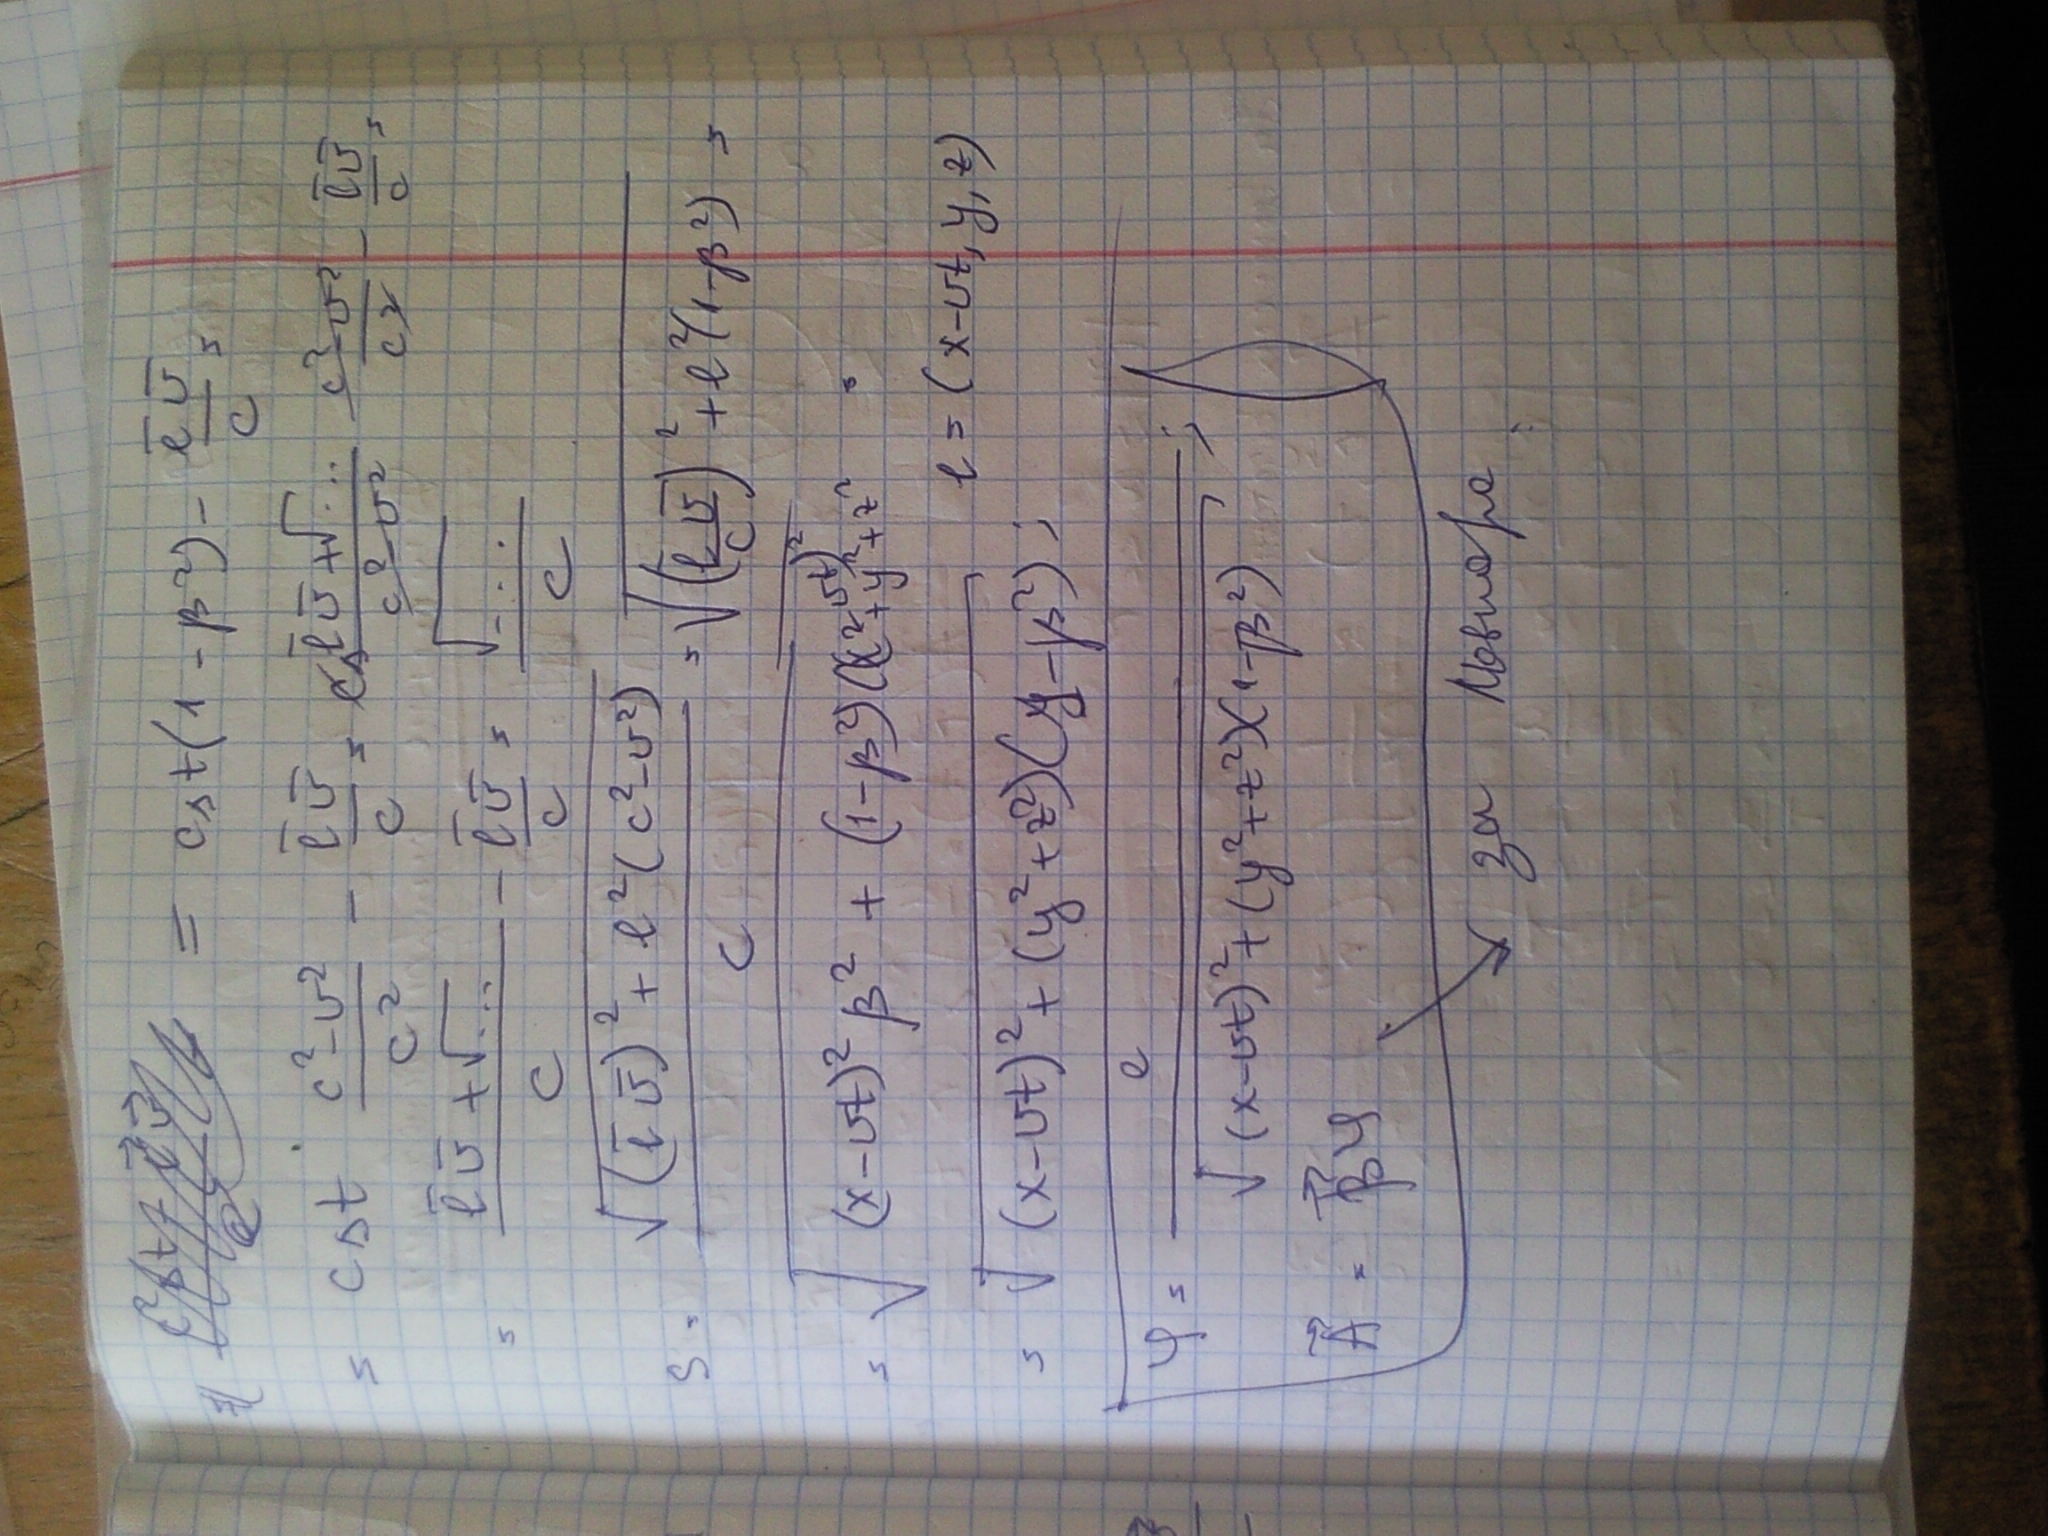 = cst(1-β²) - l̄v̄/c =
= cst · (c²-v²)/c² - l̄v̄/c = (l̄v̄+√...)/(c²-v²) · (c²-v²)/c - l̄v̄/c =
= (l̄v̄+√...)/c - l̄v̄/c = √.../c
S = √((l̄v̄)²+l²(c²-v²))/c = √((l̄v̄/c)²+l²(1-β²)) =
= √((x-vt)²β² + (1-β²)((x-vt)²+y²+z²)) =
l = (x-vt, y, z)
= √((x-vt)²+(y²+z²)(1-β²));
φ = e/√((x-vt)²+(y²+z²)(1-β²));
A⃗ = β⃗φ
за